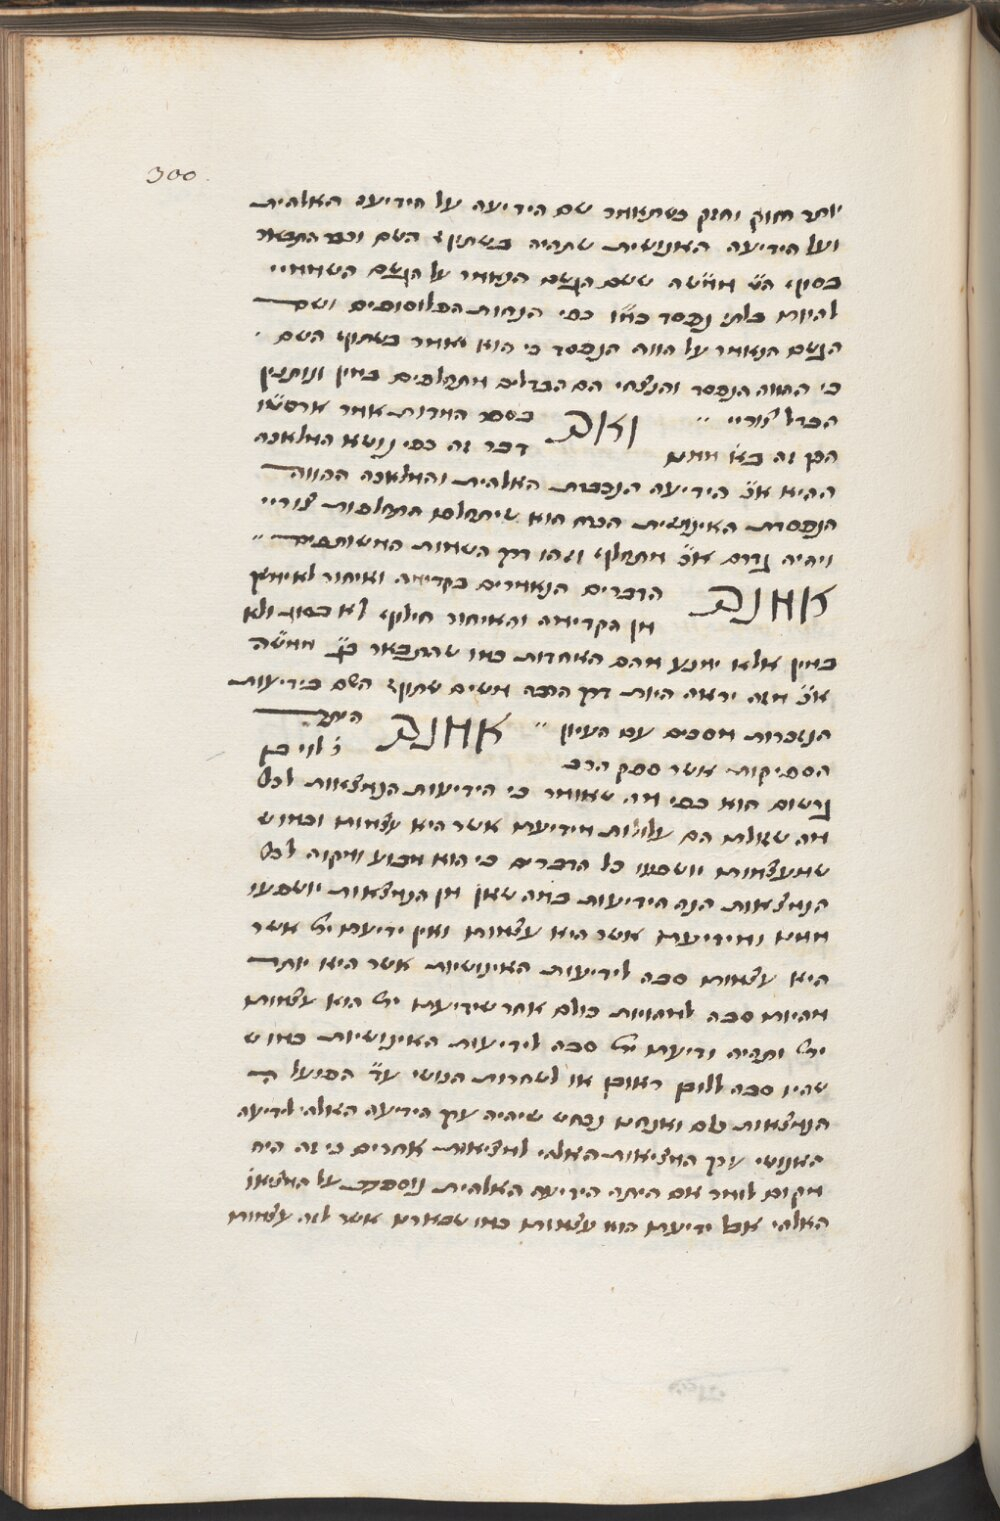 300
יותר חוזק וחזק כשתאמר שם הידיעה על הידיעה האלהית
ועל הידיעה האנושית שתהיה בשתוף השם וכבר התבאר
בסוף הש ממ"שה ששם הגשם הנאמר על הגשם השמימיי
להיות בלתי נפסד כמ"ו כפי הנחות הפלוסופים ושם
הגשם הנאמר על הווה הנפסד כי הוא יאמר בשתוף השם
כי ההווה הנפסד והנצחי הם הבדלים מתחלפים במין ונותנין
הבדל צוריי ואם כפר החדות אמר ארסטו
הנה זה בא ממנו דבר זה כפי נושא המלאכה
ההיא א"כ הידיעה הנכבדת האלהית והמלאכה ההווה
הנפסדת האינושית הכרח הוא שיתחלפו התחלפות צוריי
ויהיה גדרם א"כ מתחלף וזהו דרך השמות המשותפים
אמנם הדברים הנאמרים בקדימה ואיחור לא יתכן
מן הקדימה והאיחור חילוף לא בסוג ולא
במין אלא ימנע מהם האחדות כמו שהתבאר ממ"שה
א"כ מזה יראה היות דרך הרב משים שתוף השם בידיעות
הנזכרות מסכים עם העיון אמנם היתר
הספיקות אשר ספק הרב לוי בן
גרשום הוא כפי מה שאומר כי הידיעות הנמצאות לכל
מה שזולתו הם עלולות מידיעתו אשר היא עצמותו וכמו ש
שמעצמותו יושפעו כל הדברים כי הוא מבוע ומקור לכל
הנמצאות הנה הידיעות במה שהן מן הנמצאות יושפעו
ממנו ומידיעתו אשר היא עצמותו ואין ידיעתו ית' אשר
היא עצמותו סבה לידיעות האינושיות אשר היא יותר
מהיותו סבה למהויות כולם אחר שידיעתו ית' הוא עצמותו
ית' ותהיה ידיעתו ית' סבה לידיעות האינושיות כמו ש
שהיו סבה ללובן ראובן או לשחרות הכושי עד הפועל ה
הנמצאות כלם ואנחנו נכחש שיהיה ערך הידיעה האלהי לידיעה
האנושי ערך המציאות האלהי למציאות אחרים כי זה היה
מקום לומר אם היתה הידיעה האלהית נוספת על המציאו
האלהי אבל ידיעתו הוא עצמותו כמו שבארנו אשר לזה עצמותו